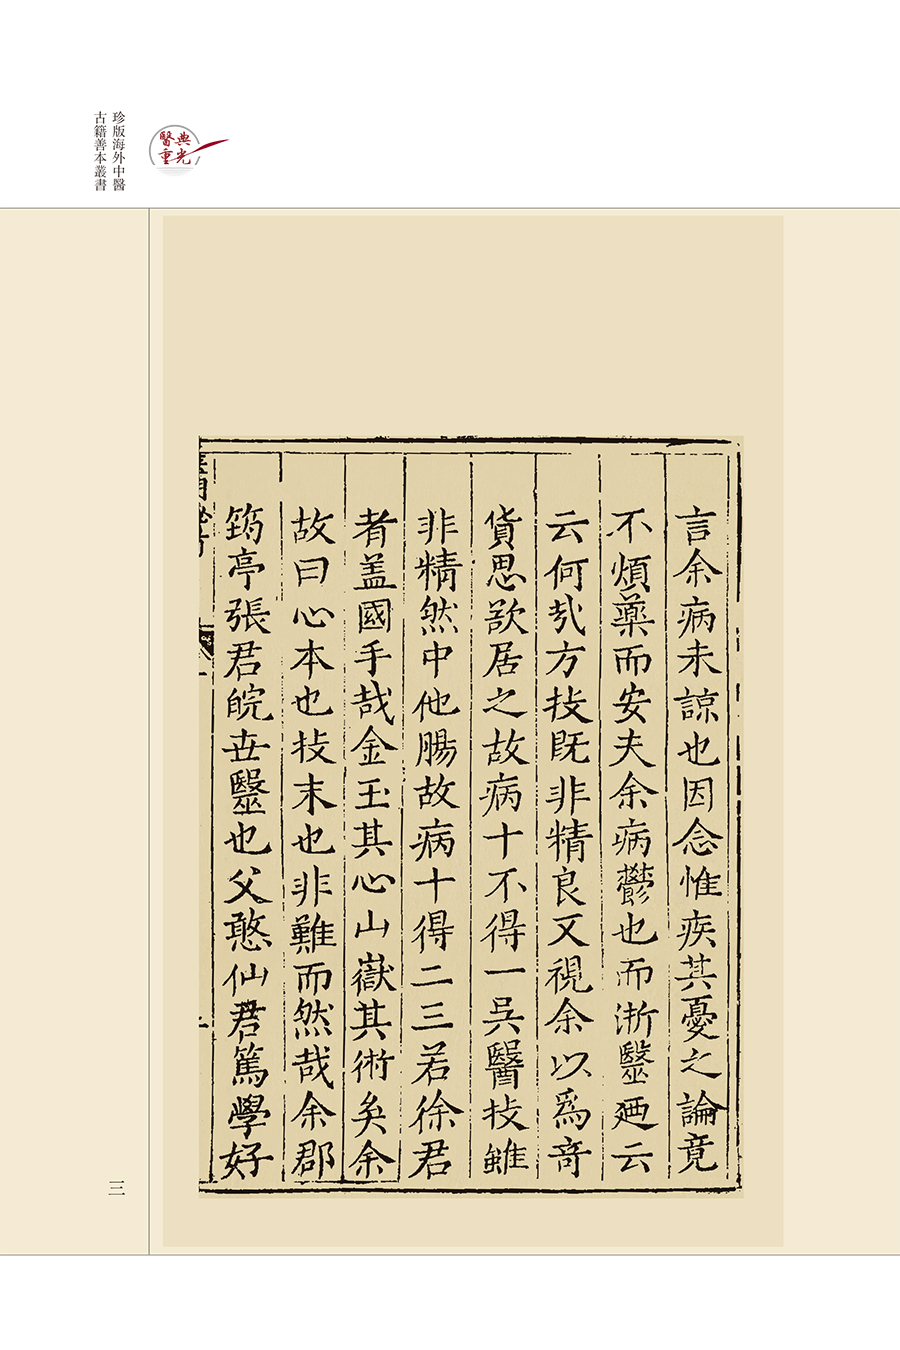 珍版海外中醫
古籍善本叢書
醫典
重光
言余病未諒也因念惟疾其憂之論竟
不煩藥而安夫余病鬱也而浙毉廼云
云何㢤方技既非精良又視余以爲奇
貨思欲居之故病十不得一吳醫技雖
非精然中他腸故病十得二三若徐君
者盖國手哉金玉其心山嶽其術矣余
故曰心本也技末也非難而然哉余郡
筠亭張君皖世毉也父憨仙君篤學好
三